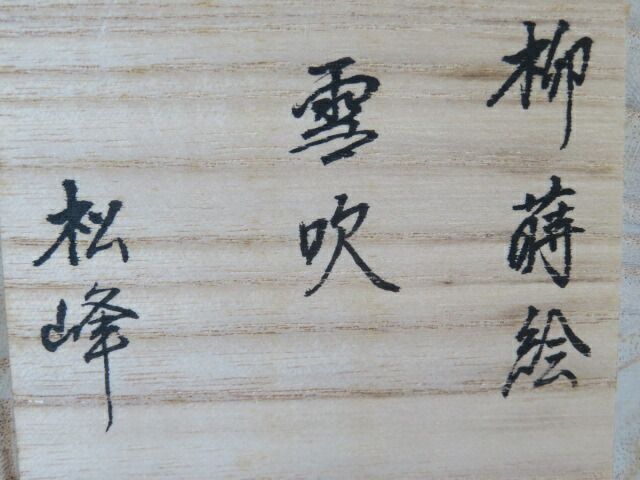 柳蒔絵
雪吹
松峰